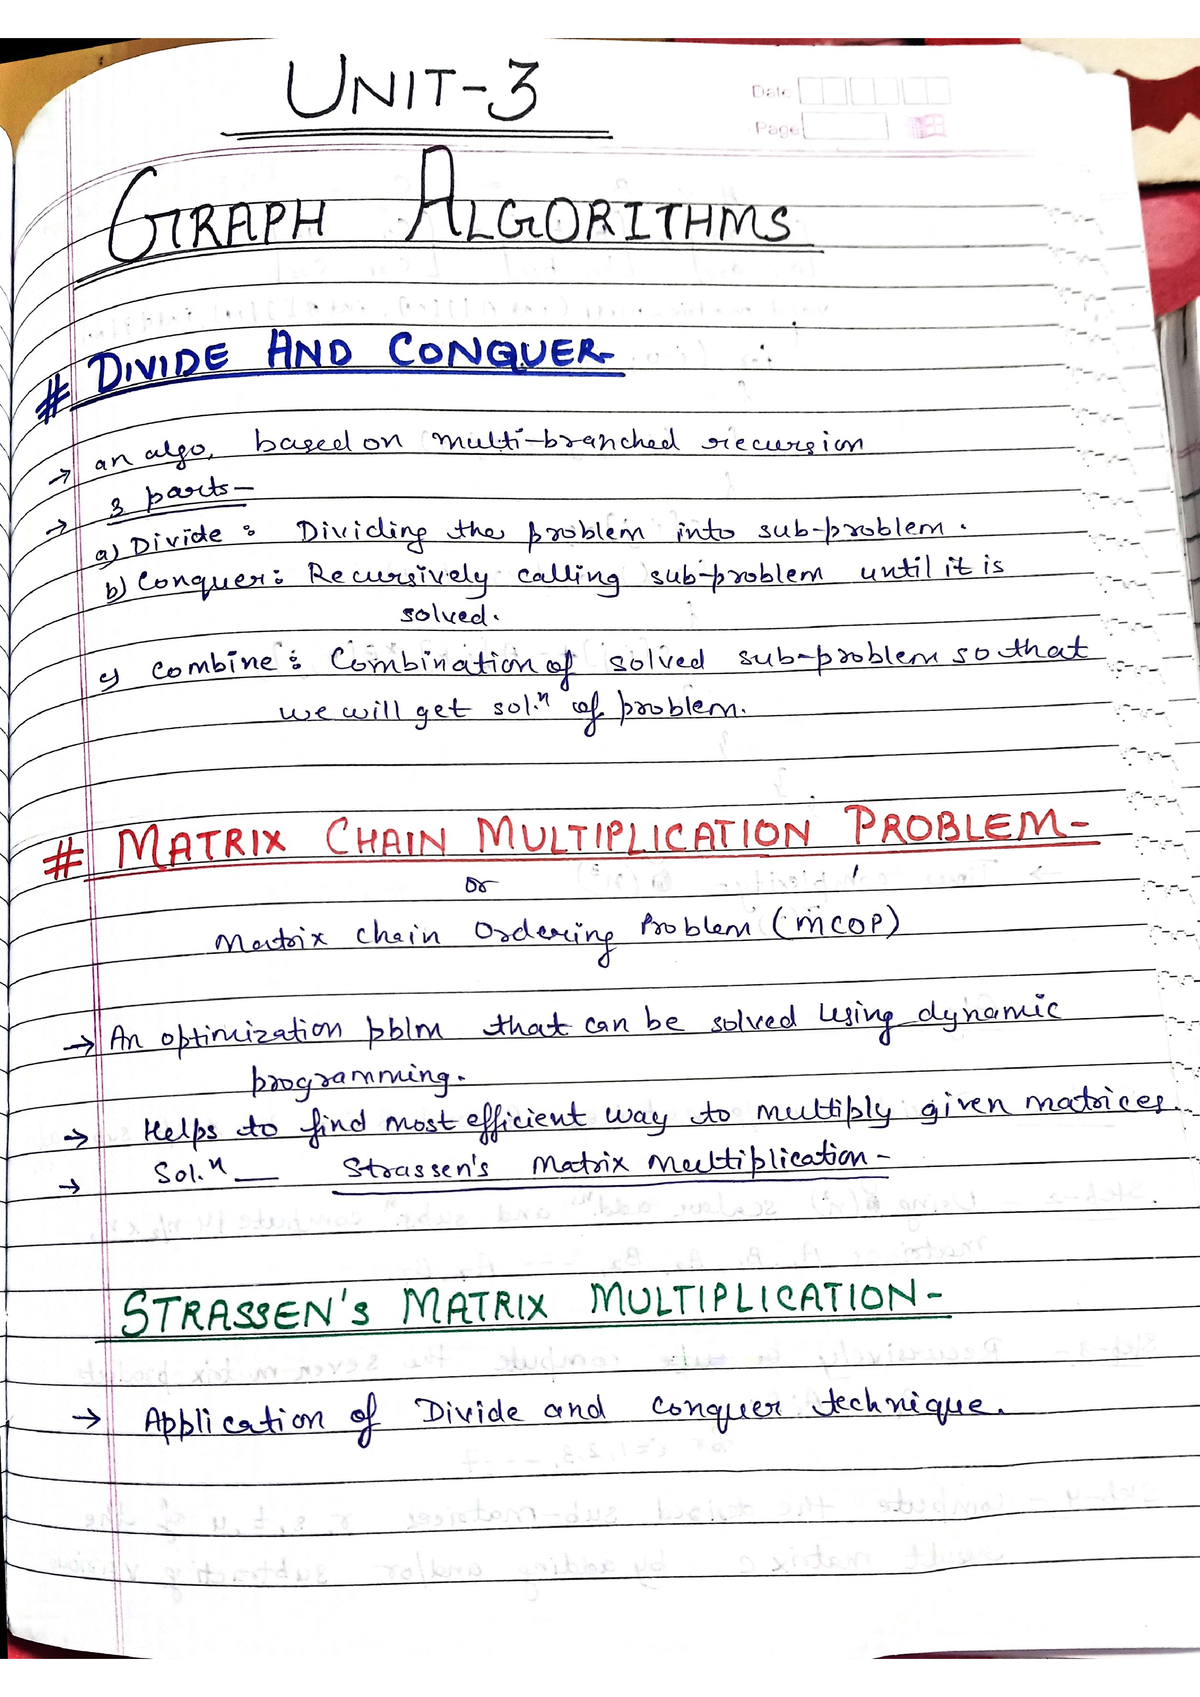 UNIT-3
Date
Page
GRAPH ALGORITHMS
# DIVIDE AND CONQUER-
→ an algo, based on multi-branched recursion
→ 3 parts-
a) Divide : Dividing the problem into sub-problem.
b) Conquer: Recursively calling sub-problem until it is
solved.
c) Combine : Combination of solved sub-problem so that
we will get sol.n of problem.
# MATRIX CHAIN MULTIPLICATION PROBLEM-
or
Matrix Chain Ordering Problem (MCOP)
→ An optimization pblm that can be solved using dynamic
programming.
→ Helps to find most efficient way to multiply given matrices.
→ Sol.n — Strassen's Matrix Multiplication -
STRASSEN'S MATRIX MULTIPLICATION-
→ Application of Divide and Conquer technique.